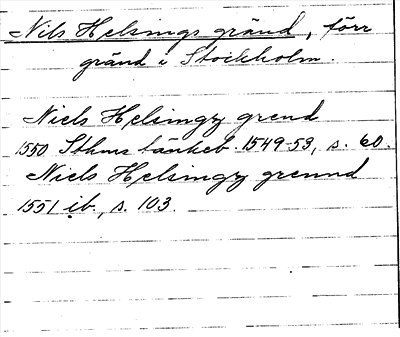 Nils Helsings gränd, förr
gränd i Stockholm.
Niels Helsingz grend
1550 Sthms tänkeb. 1549-53, s. 60.
Niels Helsingz grennd
1551 ib., s. 103.